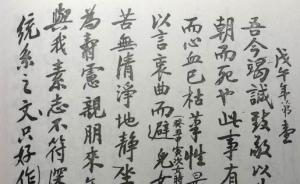 戊午年第壹
吾今竭誠致敬以
朝而死也此事有
而心血已枯筆性
以言衷曲而避
苦無清淨地静坐
為壽憲親朋來
與我素志不符深
統系之文只好作